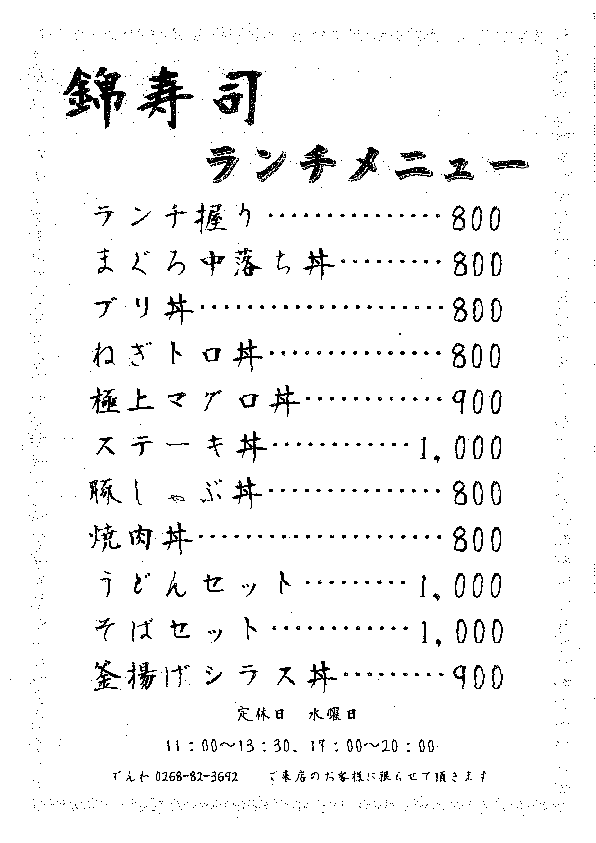 錦寿司
ランチメニュー
ランチ握り……………800
まぐろ中落ち丼………800
ブリ丼…………………800
ねぎトロ丼……………800
極上マグロ丼…………900
ステーキ丼…………1,000
豚しゃぶ丼……………800
焼肉丼…………………800
うどんセット………1,000
そばセット…………1,000
釜揚げシラス丼………900
定休日 水曜日
11:00〜13:30、17:00〜20:00
でんわ 0268-82-3692 ご来店のお客様に限らせて頂きます